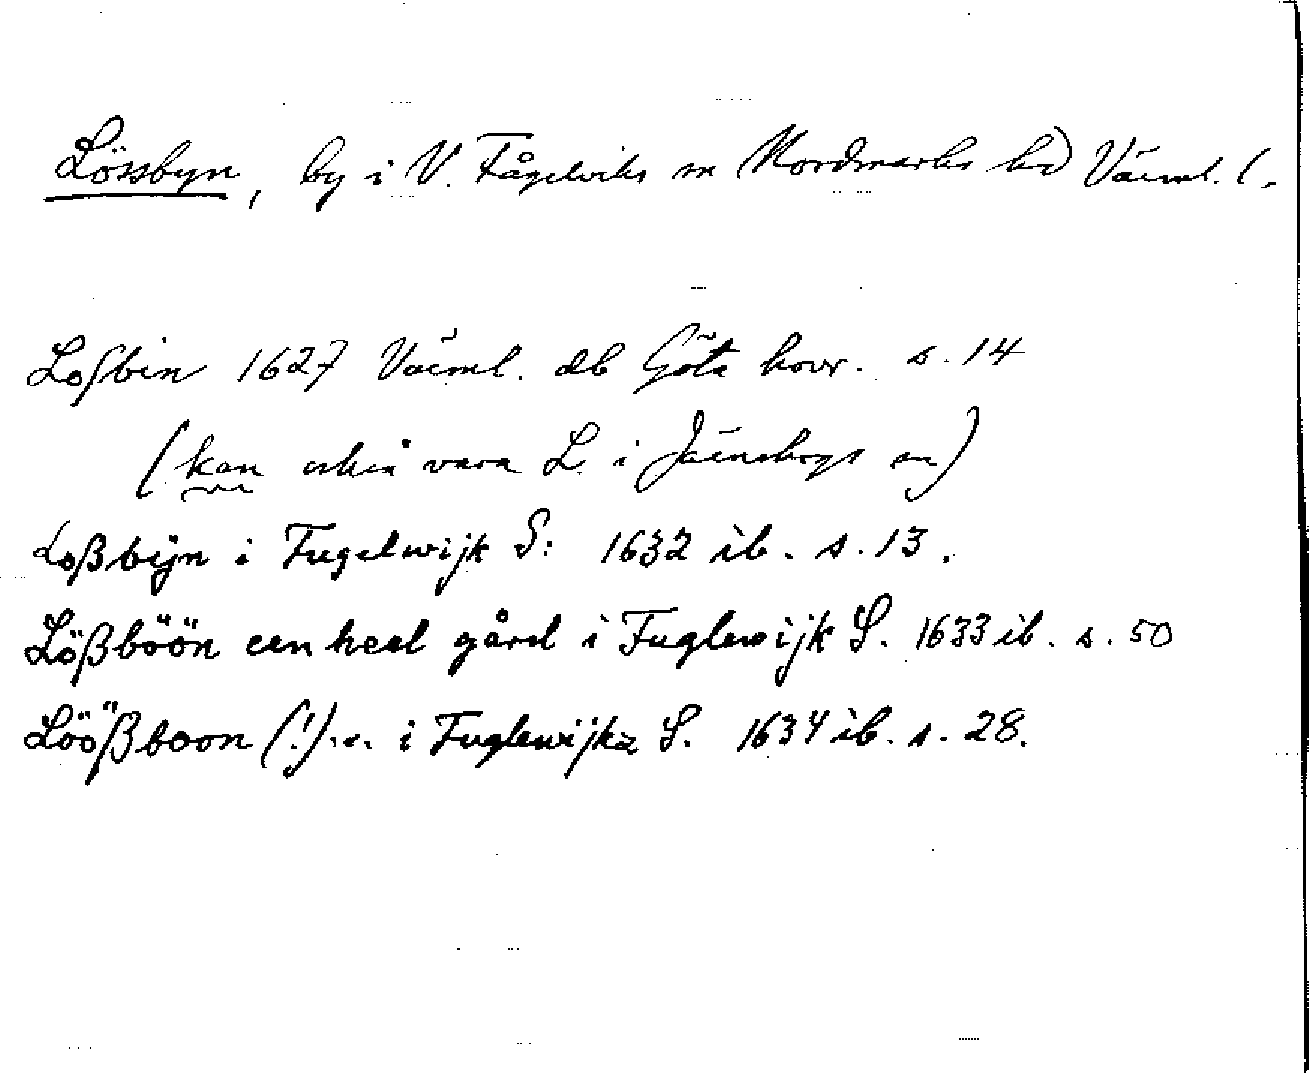 Lössbyn, by i V. Fågelviks sn Nordmarks hd Värml. l.
Loſbin 1627 Värml. db Göta hovr. s. 14
(kan också vara L. i Järnskogs sn)
Loßbÿn i Fugelwijk S: 1632 ib. s. 13.
Lößböön een heel gård i Fuglewijk S. 1633 ib. s. 50
Löößboon (!) ... i Fuglewijkz S. 1634 ib. s. 28.